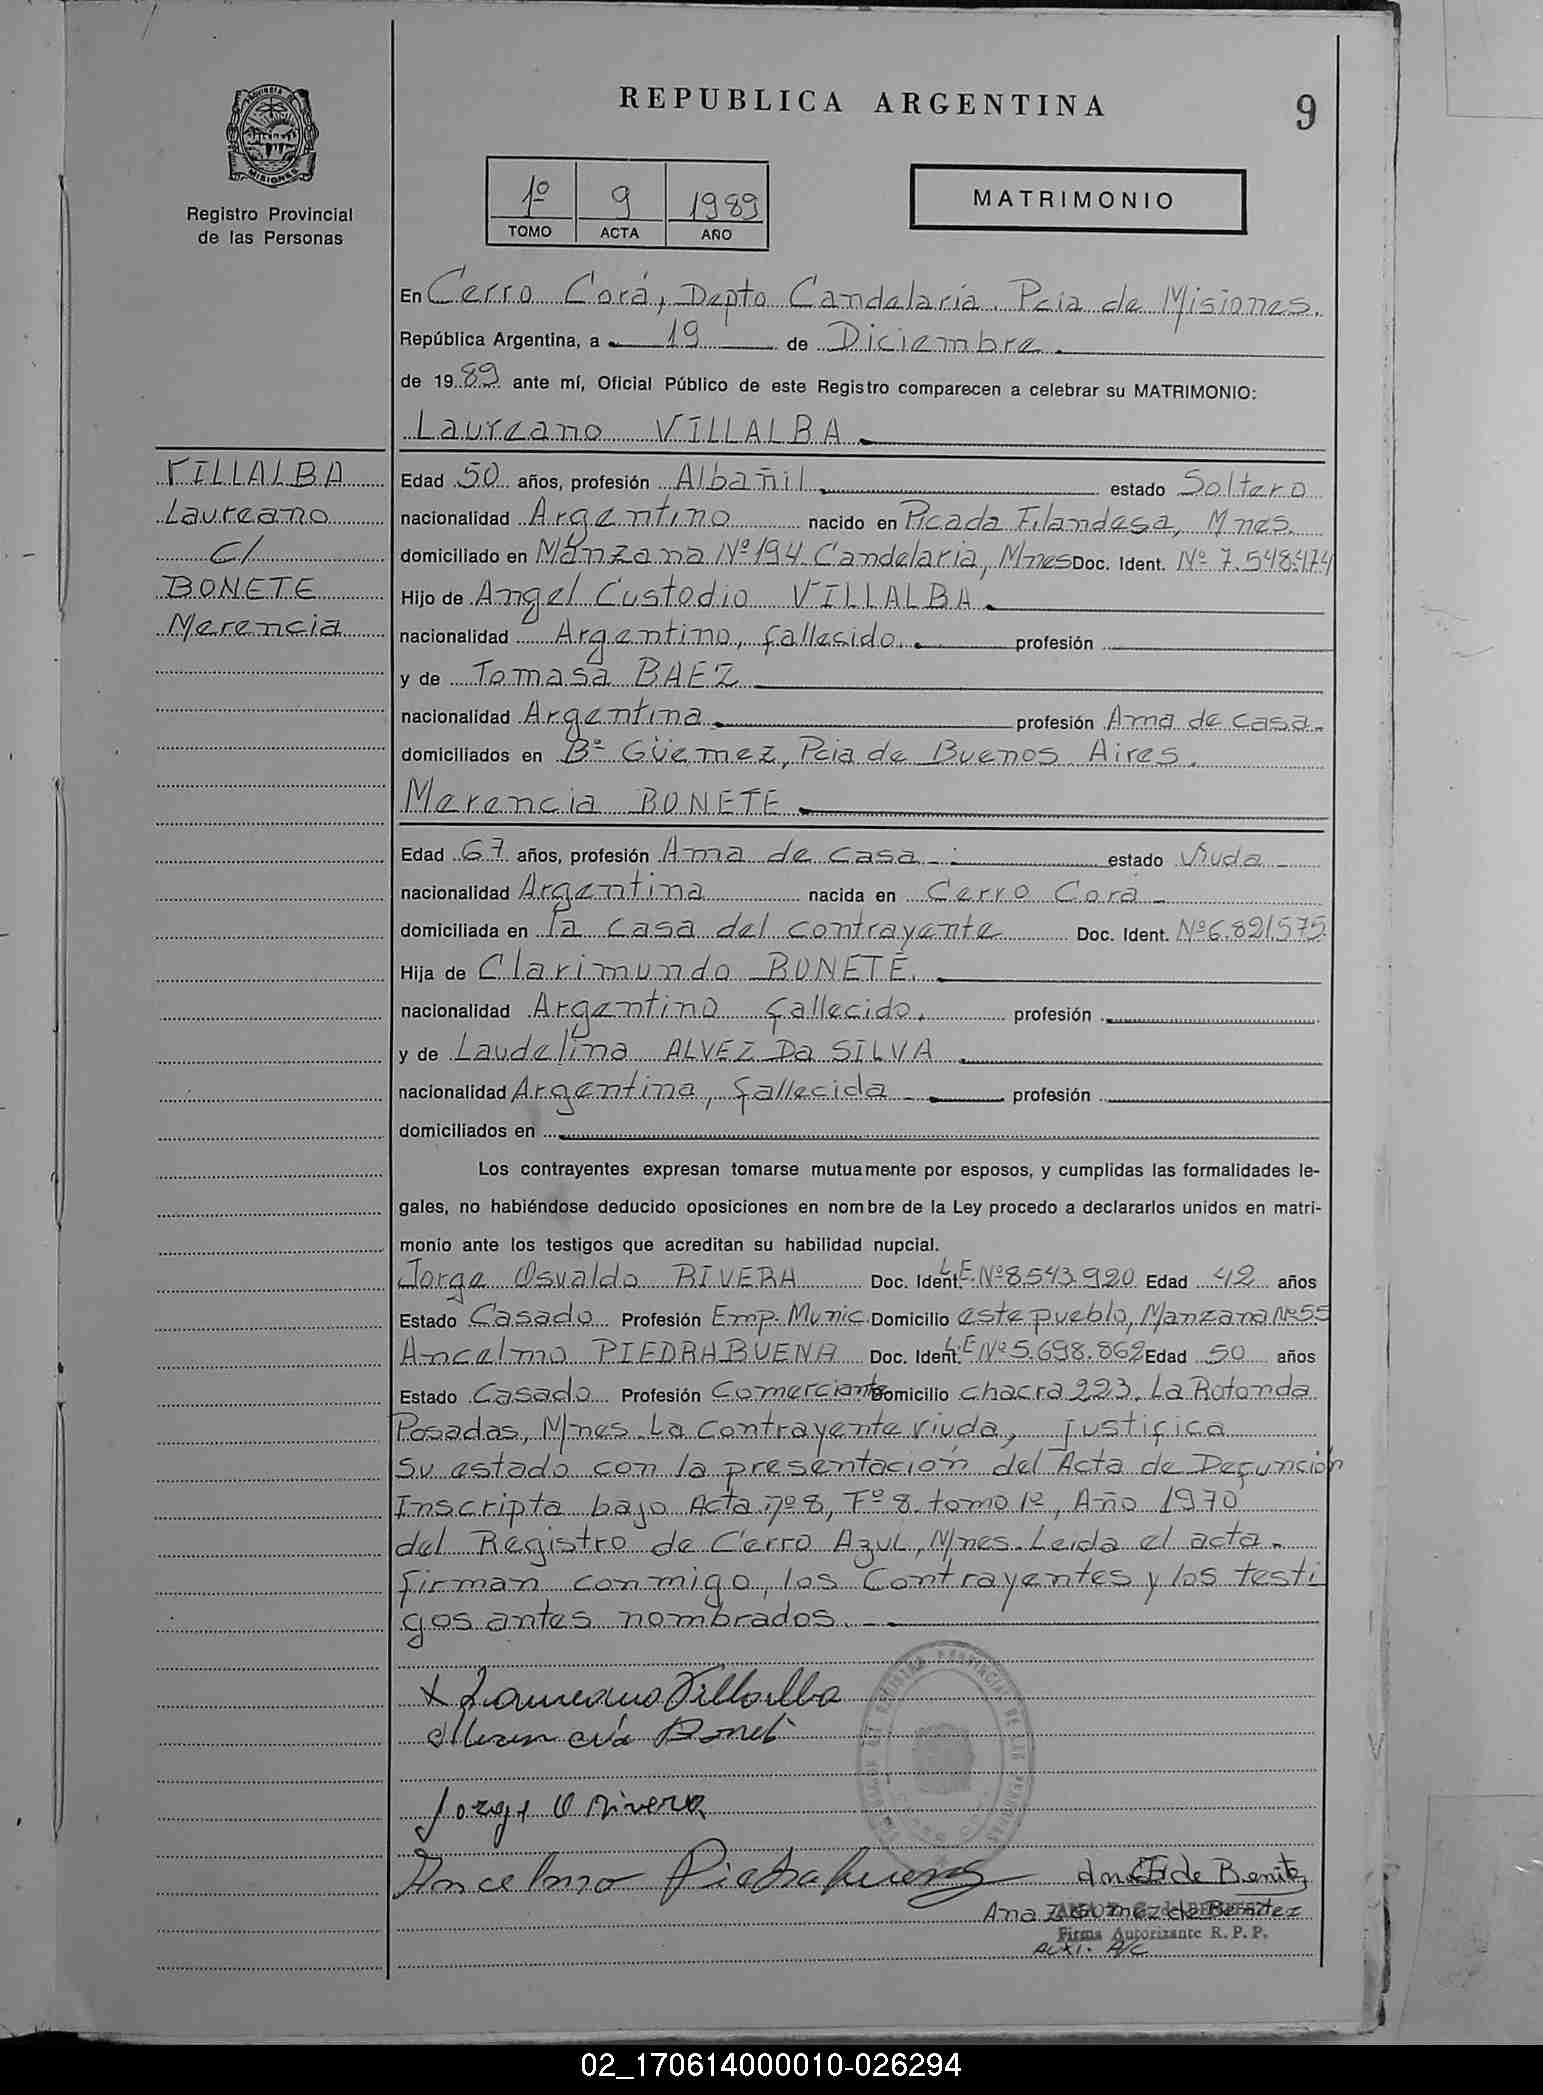 REPUBLICA ARGENTINA
9
MISIONES
Registro Provincial
de las Personas
1º 9 1989
TOMO ACTA AÑO
MATRIMONIO
En Cerro Corá, Depto Candelaria. Pcia de Misiones.
República Argentina, a 19 de Diciembre.
de 1989 ante mí, Oficial Público de este Registro comparecen a celebrar su MATRIMONIO:
Laureano VILLALBA
VILLALBA
Laureano
C/
BONETE
Merencia
Edad 50 años, profesión Albañil estado Soltero
nacionalidad Argentino nacido en Picada Filandesa, Mnes.
domiciliado en Manzana Nº 194. Candelaria, Mnes Doc. Ident. Nº 7.548.474
Hijo de Angel Custodio VILLALBA.
nacionalidad Argentino, fallecido. profesión
y de Tomasa BAEZ
nacionalidad Argentina profesión Ama de casa
domiciliados en Bº Güemez, Pcia de Buenos Aires.
Merencia BONETE
Edad 67 años, profesión Ama de casa estado Viuda
nacionalidad Argentina nacida en Cerro Corá
domiciliada en la casa del contrayente Doc. Ident. Nº 6.821.575
Hija de Clarimundo BONETE.
nacionalidad Argentino fallecido. profesión
y de Laudelina ALVEZ Da SILVA
nacionalidad Argentina, fallecida profesión
domiciliados en
Los contrayentes expresan tomarse mutuamente por esposos, y cumplidas las formalidades le-
gales, no habiéndose deducido oposiciones en nombre de la Ley procedo a declararlos unidos en matri-
monio ante los testigos que acreditan su habilidad nupcial.
Jorge Osvaldo RIVERA Doc. Ident. L.E. Nº 8.543.920 Edad 42 años
Estado Casado Profesión Emp. Munic. Domicilio este pueblo, Manzana Nº 55
Ancelmo PIEDRABUENA Doc. Ident. L.E Nº 5.698.862 Edad 50 años
Estado Casado Profesión Comerciante Domicilio chacra 223. La Rotonda
Posadas, Mnes. La Contrayente viuda, justifica
su estado con la presentación del Acta de Defunción
Inscripta bajo Acta nº 8, Fº 8. tomo 1º, Año 1970
del Registro de Cerro Azul, Mnes. Leida el acta.
firman conmigo, los Contrayentes y los testi
gos antes nombrados.
x Laureano Villalba
Merencia Bonet
Jorge O Rivero
Ancelmo Piedrabuena
Ana G de Benitez
Ana Z Gomez de Benitez
Firma Autorizante R. P. P.
Auxi. A/C
02_170614000010-026294